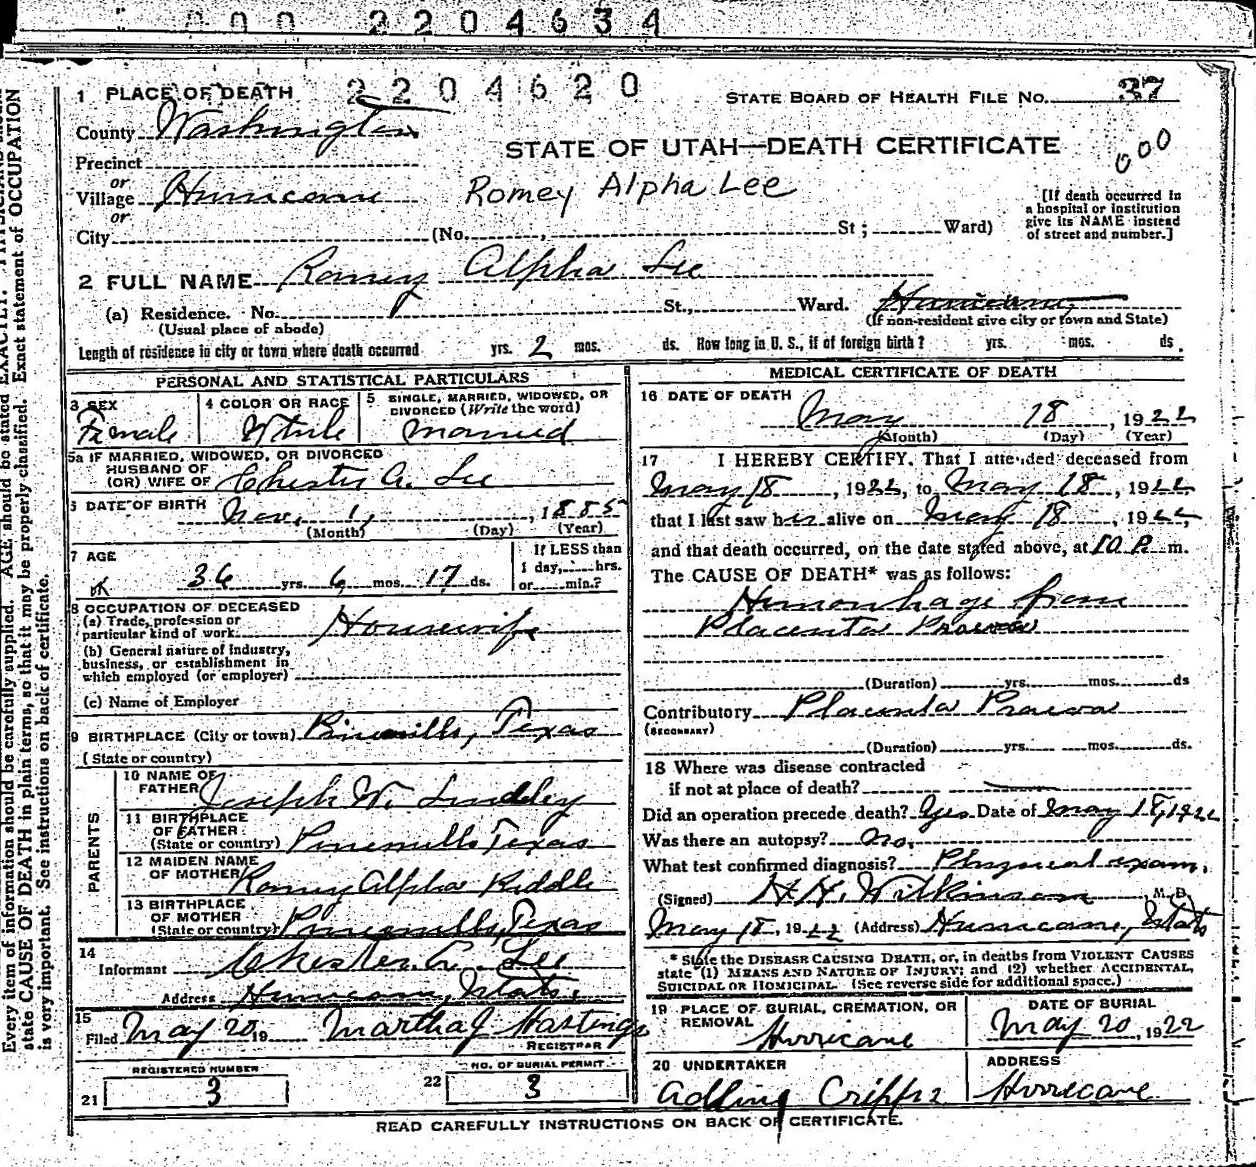 000 2204634
2204620
1 PLACE OF DEATH
STATE BOARD OF HEALTH FILE NO. 37
County Washington
STATE OF UTAH—DEATH CERTIFICATE
000
Precinct
or
Village Hurricane
Romey Alpha Lee
[If death occurred in
a hospital or institution
give its NAME instead
of street and number.]
or
City (No. , St ; Ward)
2 FULL NAME Romey Alpha Lee
(a) Residence. No. St., Ward. Hurricane
(Usual place of abode) (If non-resident give city or town and State)
Length of residence in city or town where death occurred yrs. 2 mos. ds. How long in U. S., if of foreign birth? yrs. mos. ds.
PERSONAL AND STATISTICAL PARTICULARS
3 SEX
Female
4 COLOR OR RACE
White
5 SINGLE, MARRIED, WIDOWED, OR
DIVORCED (Write the word)
Married
5a IF MARRIED, WIDOWED, OR DIVORCED
HUSBAND OF
(OR) WIFE OF Chester A. Lee
6 DATE OF BIRTH Nov. 1, , 1885
(Month) (Day) (Year)
7 AGE
36 yrs. 6 mos. 17 ds.
If LESS than
1 day, hrs.
or min.?
8 OCCUPATION OF DECEASED
(a) Trade, profession or
particular kind of work Housewife
(b) General nature of industry,
business, or establishment in
which employed (or employer)
(c) Name of Employer
9 BIRTHPLACE (City or town) Pinemills, Texas
(State or country)
PARENTS
10 NAME OF
FATHER Joseph W. Lindley
11 BIRTHPLACE
OF FATHER
(State or country) Pinemills Texas
12 MAIDEN NAME
OF MOTHER Romey Alpha Riddle
13 BIRTHPLACE
OF MOTHER
(State or country) Pinemills, Texas
14
Informant Chester A. Lee
Address Hurricane, Utah.
15
Filed May 20, 19 Martha J Hastings
REGISTRAR
REGISTERED NUMBER
21 3
NO. OF BURIAL PERMIT
22 3
MEDICAL CERTIFICATE OF DEATH
16 DATE OF DEATH
May 18 , 1922
(Month) (Day) (Year)
17 I HEREBY CERTIFY, That I attended deceased from
May 18 , 1922, to May 18 , 1922
that I last saw her alive on May 18 , 1922,
and that death occurred, on the date stated above, at 10 P. m.
The CAUSE OF DEATH* was as follows:
Hemorrhage from
Placenta Praevia
(Duration) yrs. mos. ds
Contributory Placenta Praevia
(SECONDARY)
(Duration) yrs. mos. ds.
18 Where was disease contracted
if not at place of death?
Did an operation precede death? Yes Date of May 18, 1922
Was there an autopsy? No.
What test confirmed diagnosis? Physical exam.
(Signed) H. H. Wilkinson M. D.
May 18, 1922 (Address) Hurricane, Utah
* State the DISEASE CAUSING DEATH, or, in deaths from VIOLENT CAUSES
state (1) MEANS AND NATURE OF INJURY; and (2) whether ACCIDENTAL,
SUICIDAL OR HOMICIDAL. (See reverse side for additional space.)
19 PLACE OF BURIAL, CREMATION, OR
REMOVAL
Hurricane
DATE OF BURIAL
May 20, 1922
20 UNDERTAKER
Cripps
ADDRESS
Hurricane
READ CAREFULLY INSTRUCTIONS ON BACK OF CERTIFICATE.
Every item of information should be carefully supplied. AGE should be stated EXACTLY.
state CAUSE OF DEATH in plain terms, so that it may be properly classified. Exact statement of OCCUPATION
is very important. See instructions on back of certificate.